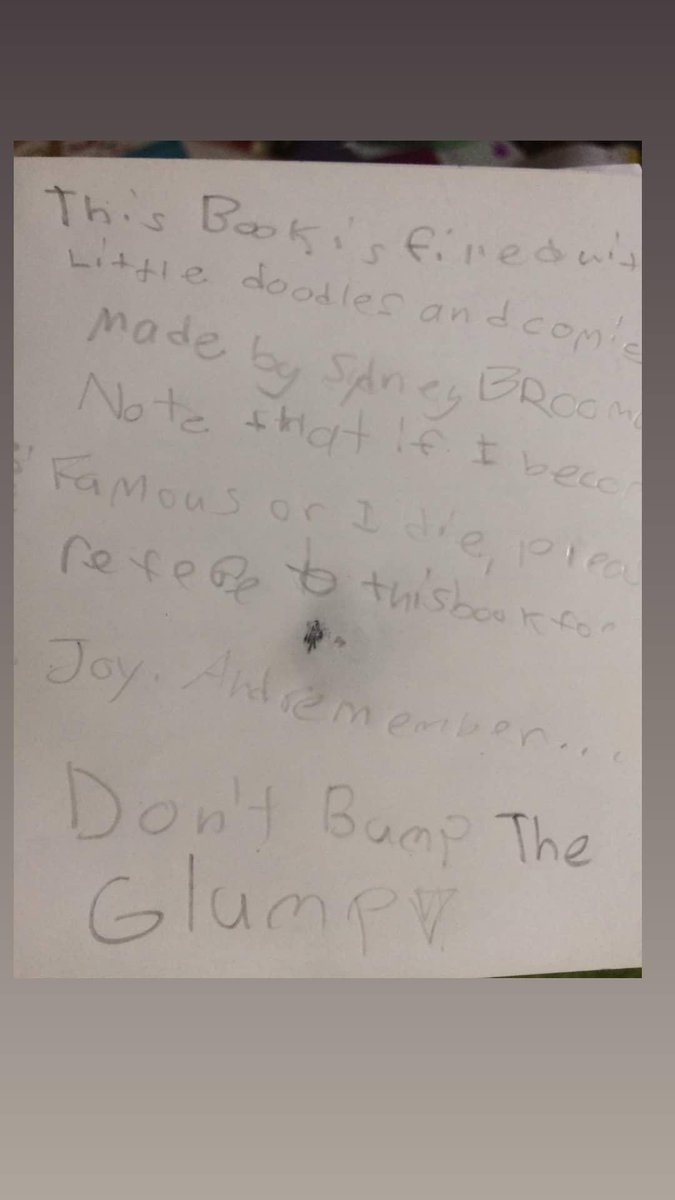 This Book is filled wit
Little doodles and comic
made by Sydney BROOM
Note that if I becom
Famous or I die, pleas
refeRe to this book for
Joy. And remember...
Don't Bump The
Glump